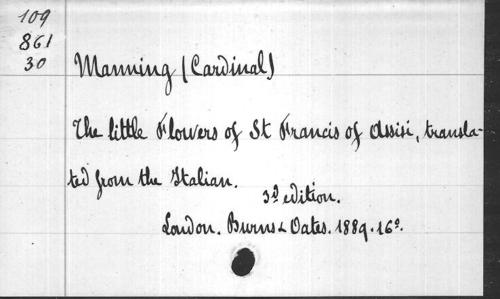 109
861
30
Manning (Cardinal)
The little Flowers of St Francis of Assisi, transla-
ted from the Italian.
3d edition.
London. Burns & Oates. 1889. 16º.